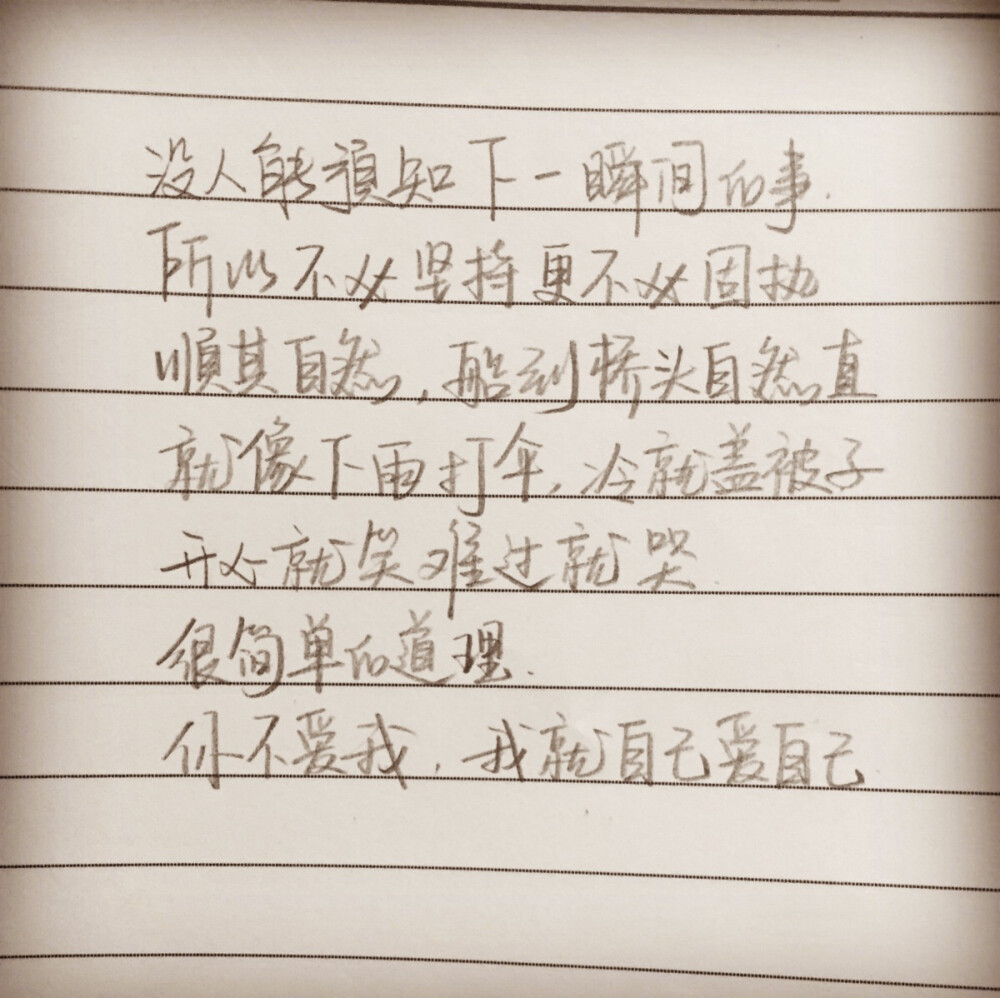 没人能預知下一瞬间的事.
所以不必坚持更不必固执
順其自然,船到桥头自然直
就像下雨打伞,冷就盖被子
开心就笑难过就哭
很简单的道理.
你不爱我,我就自己爱自己